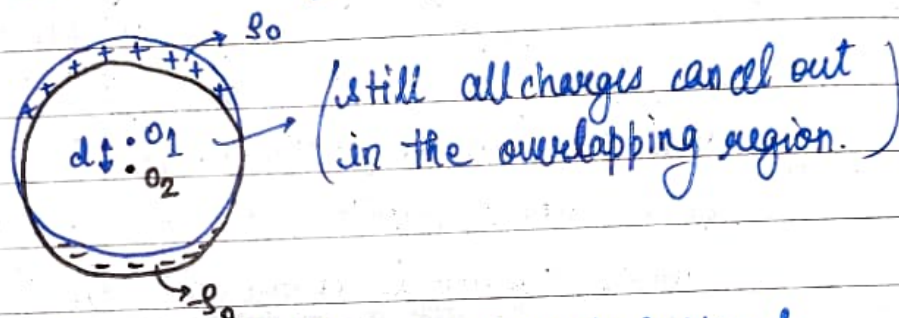 ρ₀
+ + + + + + + + +
(still all charges cancel out
in the overlapping region.)
d ↕ • O₁
• O₂
- - - - - - -
-ρ₀